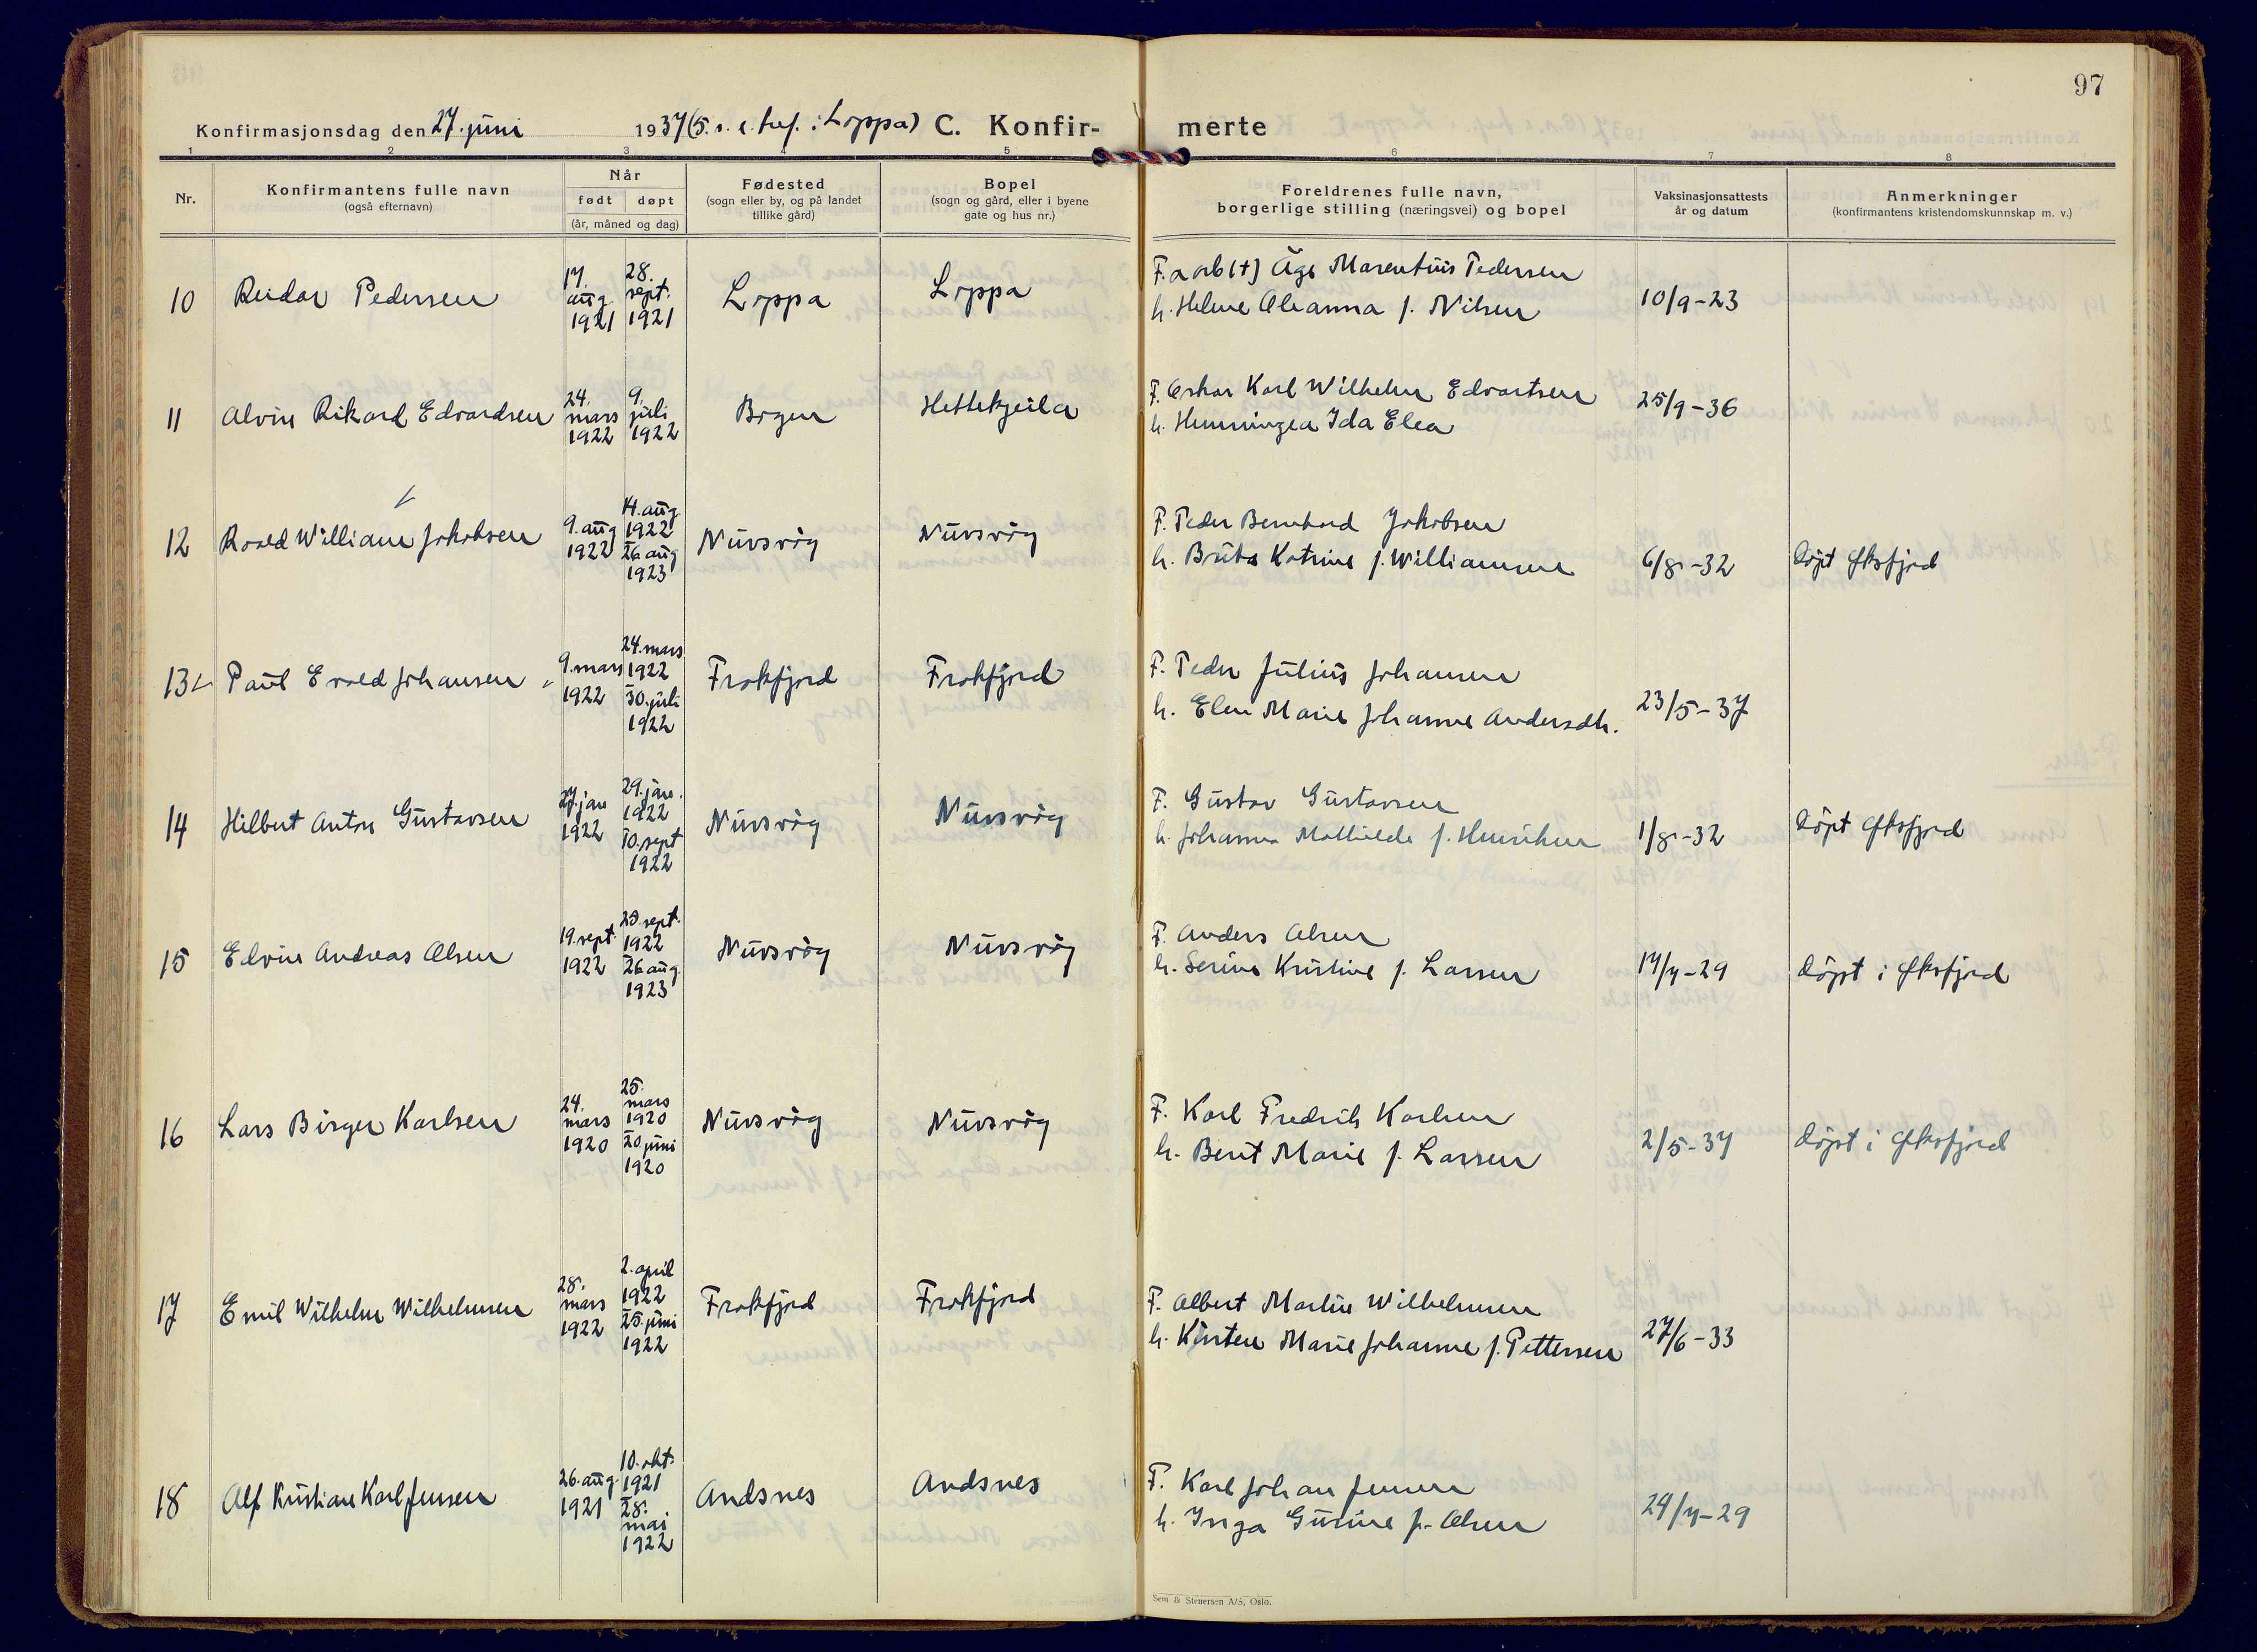 97
Konfirmasjonsdag den 27. juni 1937 (5. s. e. tref. i Loppa) C. Konfir- merte
1 2 3 4 5 6 7 8
Nr.
Konfirmantens fulle navn
(også efternavn)
Når
født døpt
(år, måned og dag)
Fødested
(sogn eller by, og på landet
tillike gård)
Bopel
(sogn og gård, eller i byene
gate og hus nr.)
Foreldrenes fulle navn,
borgerlige stilling (næringsvei) og bopel
Vaksinasjonsattests
år og datum
Anmerkninger
(konfirmantens kristendomskunnskap m. v.)
10 Reidar Pedersen
17.
aug.
1921
28.
sept.
1921
Loppa
Loppa
F. arb (+) Åge Marentius Pedersen
h. Helene Aleanna f. Nilsen
10/9-23
11 Alvin Rikard Edvardsen
24.
mars
1922
9.
juli
1922
Bogen
Hettekjeila
F. Oskar Karl Wilhelm Edvartsen
h. Henningea Ida Elea
25/9-36
12 Roald William Jakobsen
9. aug
1922
14. aug
1922
26 aug
1923
Nuvsvåg
Nuvsvåg
F. Peder Bernhard Jakobsen
h. Brita Katrine f. Williamsen
6/8-32
Døpt Øksfjord
13 Paul Evald Johansen
9. mars
1922
24. mars
1922
30. juli
1922
Frakfjord
Frakfjord
F. Peder Julius Johansen
h. Elen Marie Johanne Andersdtr.
23/5-37
14 Hilbert Anton Gustavsen
27. jan
1922
29. jan.
1922
10. sept
1922
Nuvsvåg
Nuvsvåg
F. Gustav Gustavsen
h. Johanna Mathilde f. Henriksen
1/8-32
Døpt Øksfjord
15 Edvin Andreas Olsen
19. sept.
1922
23. sept.
1922
26 aug.
1923
Nuvsvåg
Nuvsvåg
F. Anders Olsen
h. Serine Kristine f. Larsen
17/4-29
Døpt i Øksfjord
16 Lars Birger Karlsen
24.
mars
1920
25.
mars
1920
20 juni
1920
Nuvsvåg
Nuvsvåg
F. Karl Fredrik Karlsen
h. Berit Marie f. Larsen
2/5-37
Døpt i Øksfjord
17 Emil Wilhelm Wilhelmsen
28.
mars
1922
2. april
1922
25. juni
1922
Frakfjord
Frakfjord
F. Albert Martin Wilhelmsen
h. Kirsten Marie Johanne f. Pettersen
27/6-33
18 Alf Kristian Karl Jensen
26. aug.
1921
10. okt.
1921
28.
mai
1922
Andsnes
Andsnes
F. Karl Johan Jensen
h. Inga Gurine f. Olsen
24/4-29
Sem & Stenersen A/S, Oslo.